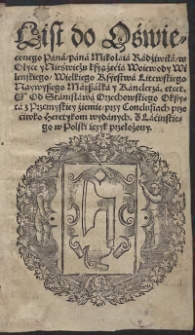 List do Oświe-
conego Pana/ páná Mikołaiá Rádźiwiłá/ w
Olyce y Nieświeżu książęćia Woiewody Wi-
leńskiego/ Wielkiego Księstwá Litewskiego
Naywyszszego Márszałká y Kánclerzá. etcet.
Od Stánisłáwá Orzechowskiego Okszy-
cá z Przemyskiey źiemie: przy Conclusiach prze-
ćiwko Heretykom wydánych. Z Láćińskie-
go w Polski ięzyk przełożony.